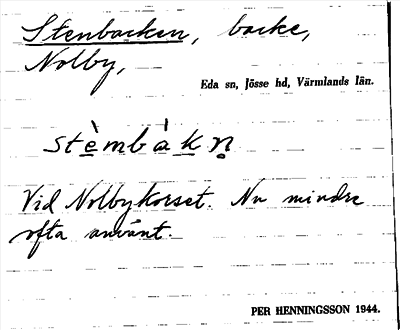 Stenbacken, backe,
Nolby,
Eda sn, Jösse hd, Värmlands län.
stè̱mbà̱ḵn̥
Vid Nolbykorset. Nu mindre
ofta använt.
PER HENNINGSSON 1944.